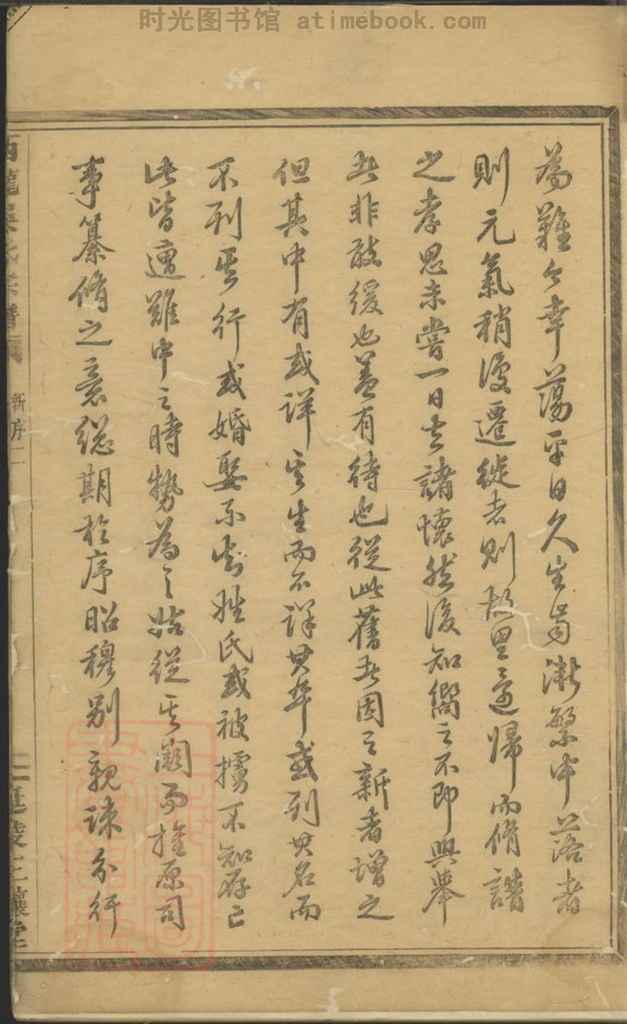 时光图书馆 atimebook.com
為難今幸蕩平日久生齒漸繁中落者
則元氣稍復遷徙者則故里言還歸而脩譜
之孝思未嘗一日去諸懷然後知嚮之不即興舉
者非敢緩也蓋有待也從此舊者因之新者增之
但其中有或詳其生而不詳其卒或列其名而
不列其行或婚娶不知姓氏或被擄不知存亡
此皆遭難中之時勢為之姑從其闕而推原司
事纂脩之意總期於序昭穆別親疎分行
新序二